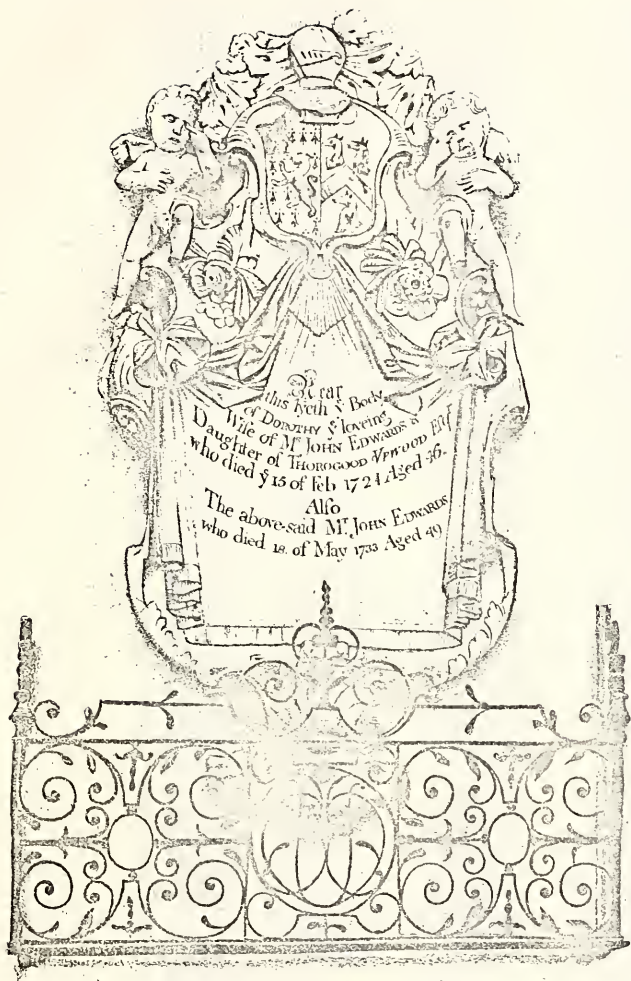 Near
this lyeth ẏ Body
of DOROTHY ẏ loveing
Wife of Mr JOHN EDWARDS &
Daughter of THOROGOOD VPWOOD Esq
who died ẏ 15 of Feb 1724 Aged 36.
Alſo
The above-said Mr. JOHN EDWARDS
who died 18. of May 1733 Aged 49